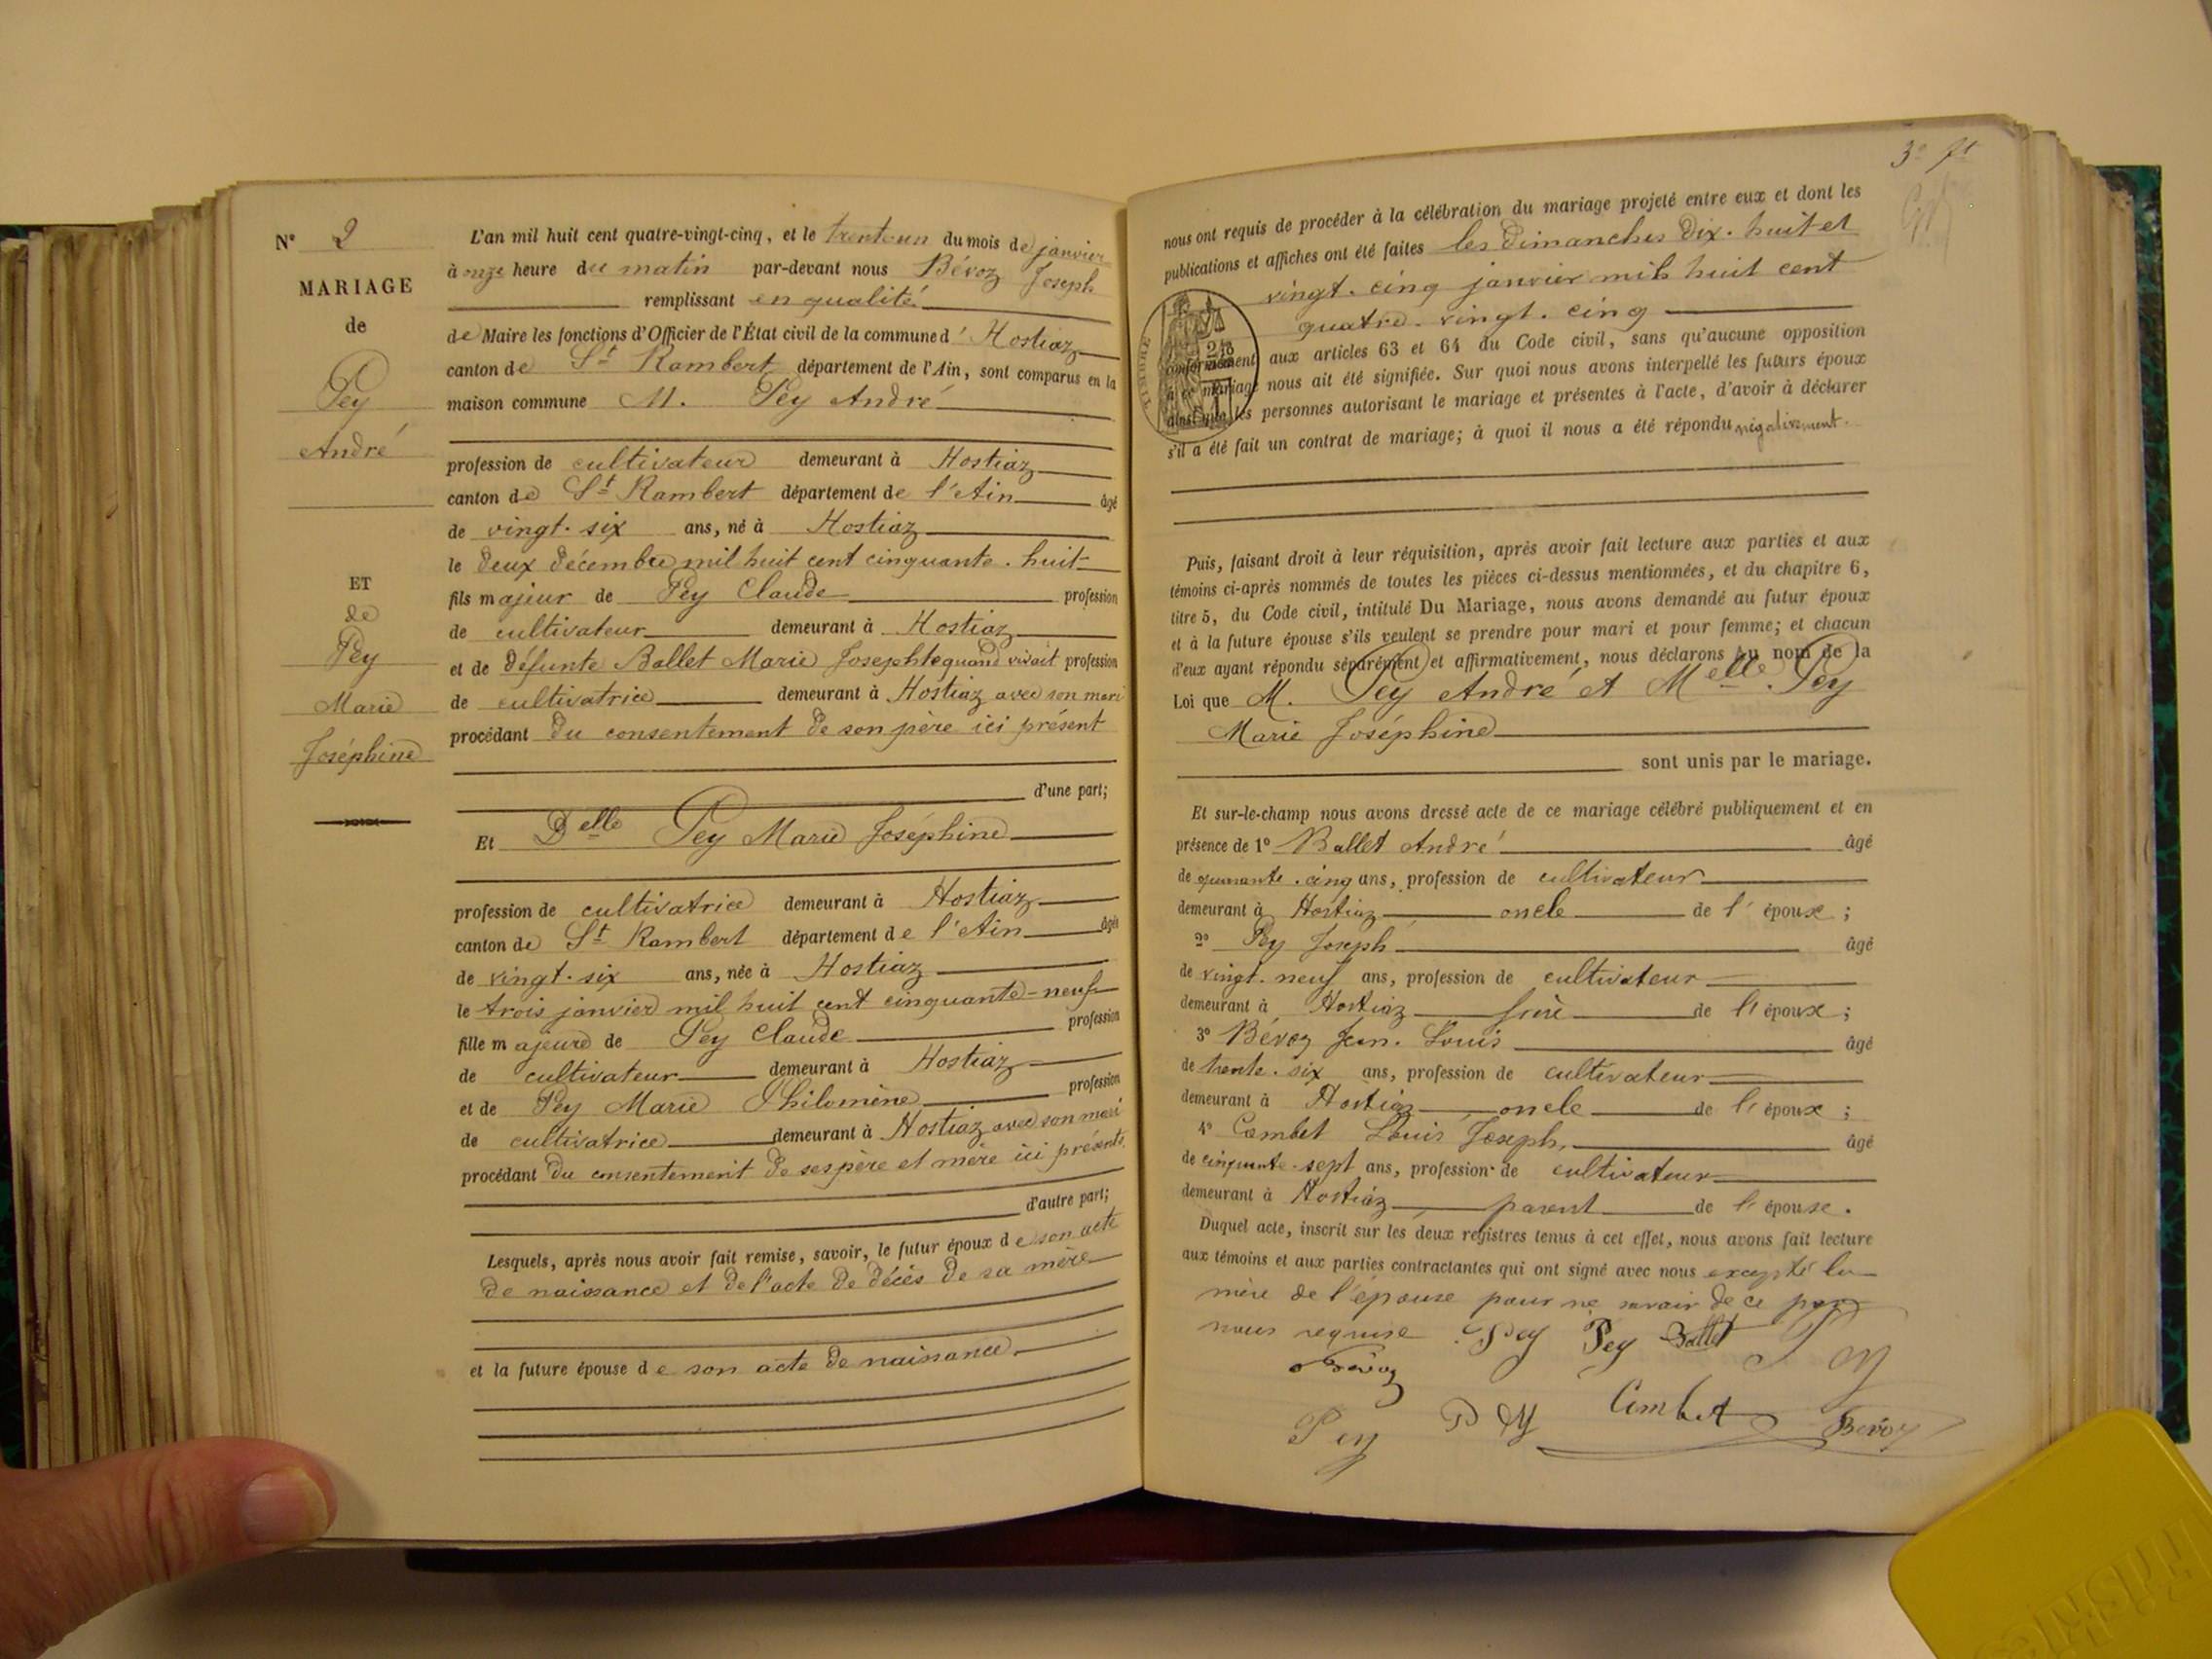 N° 2
MARIAGE
de
Pey
André
ET
de
Pey
Marie
Joséphine
L'an mil huit cent quatre-vingt-cinq, et le trente un du mois de janvier
à onze heure du matin par-devant nous Bévoz Joseph
remplissant en qualité
de Maire les fonctions d'Officier de l'État civil de la commune d' Hostiaz
canton de St Rambert département de l'Ain, sont comparus en la
maison commune M. Pey André
profession de cultivateur demeurant à Hostiaz
canton de St Rambert département de l'Ain âgé
de vingt-six ans, né à Hostiaz
le deux décembre mil huit cent cinquante-huit
fils majeur de Pey Claude profession
de cultivateur demeurant à Hostiaz
et de défunte Ballet Marie Josephte quand vivait profession
de cultivatrice demeurant à Hostiaz avec son mari
procédant du consentement de son père ici présent
d'une part;
Et Delle Pey Marie Joséphine
profession de cultivatrice demeurant à Hostiaz
canton de St Rambert département de l'Ain âgée
de vingt-six ans, née à Hostiaz
le trois janvier mil huit cent cinquante-neuf
fille majeure de Pey Claude profession
de cultivateur demeurant à Hostiaz
et de Pey Marie Philomène profession
de cultivatrice demeurant à Hostiaz avec son mari
procédant du consentement de ses père et mère ici présents
d'autre part;
Lesquels, après nous avoir fait remise, savoir, le futur époux de son acte
de naissance et de l'acte de décès de sa mère
et la future épouse de son acte de naissance
3e ft
nous ont requis de procéder à la célébration du mariage projeté entre eux et dont les
publications et affiches ont été faites les dimanches dix-huit et
vingt-cinq janvier mil huit cent
quatre-vingt-cinq
conformément aux articles 63 et 64 du Code civil, sans qu'aucune opposition
à ce mariage nous ait été signifiée. Sur quoi nous avons interpellé les futurs époux
ainsi que les personnes autorisant le mariage et présentes à l'acte, d'avoir à déclarer
s'il a été fait un contrat de mariage; à quoi il nous a été répondu négativement.
TIMBRE
Puis, faisant droit à leur réquisition, après avoir fait lecture aux parties et aux
témoins ci-après nommés de toutes les pièces ci-dessus mentionnées, et du chapitre 6,
titre 5, du Code civil, intitulé Du Mariage, nous avons demandé au futur époux
et à la future épouse s'ils veulent se prendre pour mari et pour femme; et chacun
d'eux ayant répondu séparément et affirmativement, nous déclarons Au nom de la
Loi que M. Pey André et Melle Pey
Marie Joséphine
sont unis par le mariage.
Et sur-le-champ nous avons dressé acte de ce mariage célébré publiquement et en
présence de 1° Ballet André âgé
de quarante-cinq ans, profession de cultivateur
demeurant à Hostiaz oncle de l'époux;
2° Pey Joseph âgé
de vingt-neuf ans, profession de cultivateur
demeurant à Hostiaz frère de l'époux;
3° Bévoz Jean-Louis âgé
de trente-six ans, profession de cultivateur
demeurant à Hostiaz oncle de l'époux;
4° Combet Louis Joseph, âgé
de cinquante-sept ans, profession de cultivateur
demeurant à Hostiaz parent de l'épouse.
Duquel acte, inscrit sur les deux registres tenus à cet effet, nous avons fait lecture
aux témoins et aux parties contractantes qui ont signé avec nous excepté la
mère de l'épouse pour ne savoir de ce par
nous requise Pey Pey Ballet Pey
Bévoz
Pey Pey Combet Bévoz